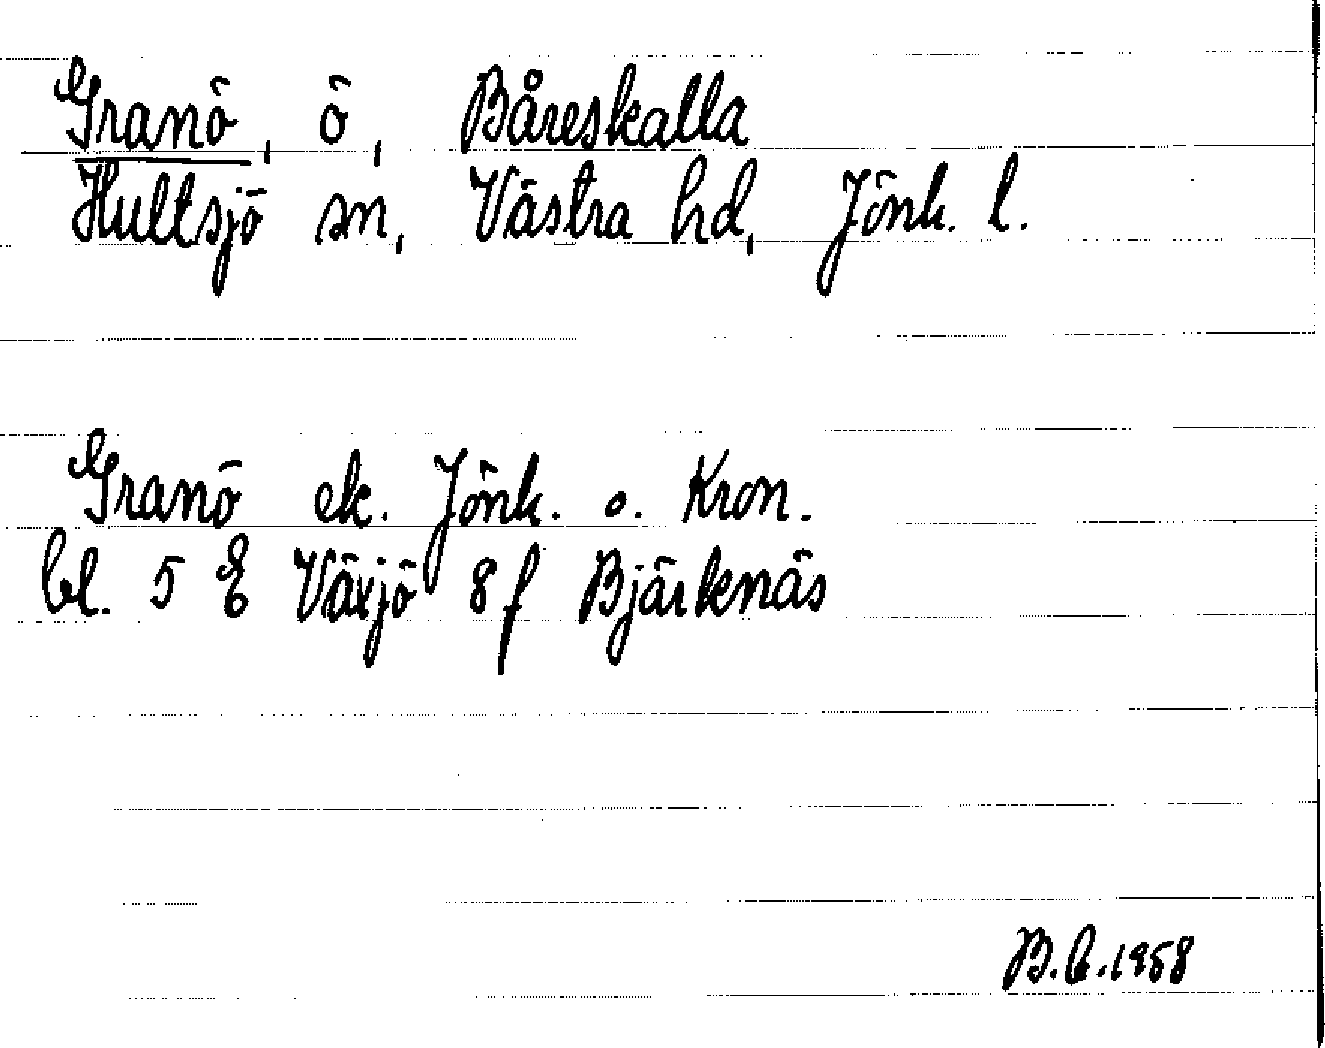 Granö, ö, Båreskalla
Hultsjö sn, Västra hd, Jönk. l.
Granö ek. Jönk. o. Kron.
bl. 5 E Växjö 8 f Bjärkenäs
B.E. 1958